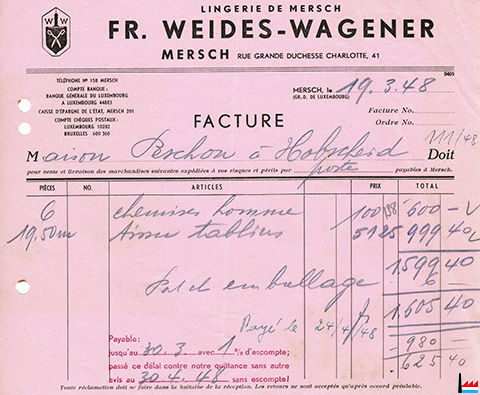 LINGERIE DE MERSCH
FR. WEIDES-WAGENER
MERSCH RUE GRANDE DUCHESSE CHARLOTTE, 41
W W
9405
TÉLÉPHONE Nº 158 MERSCH
COMPTE BANQUE:
BANQUE GÉNÉRALE DU LUXEMBOURG
A LUXEMBOURG 44883
CAISSE D'ÉPARGNE DE L'ÉTAT, MERSCH 201
COMPTE CHÈQUES POSTAUX:
LUXEMBOURG 10282
BRUXELLES 600 368
MERSCH, le 19.3.48
(GR.-D. DE LUXEMBOURG)
Facture No.
Ordre No.
FACTURE
111/48
Maison Peschon à Hobscheid Doit
pour vente et livraison des marchandises suivantes expédiées à vos risques et périls par poste payables à Mersch.
PIÈCES NO. ARTICLES PRIX TOTAL
6 chemises homme 100 600 -
19,50m tissu tabliers 5125 999 40
1.599 40
Port et emballage 6 -
1.605 40
Payé le 24/4/48
980 -
625 40
Payable:
jusqu'au 30.3. avec 1 % d'escompte;
passé ce délai contre notre quittance sans autre
avis au 30.4.48 sans escompte!
Toute réclamation doit se faire dans la huitaine de la réception. Les retours ne sont acceptés qu'après accord préalable.